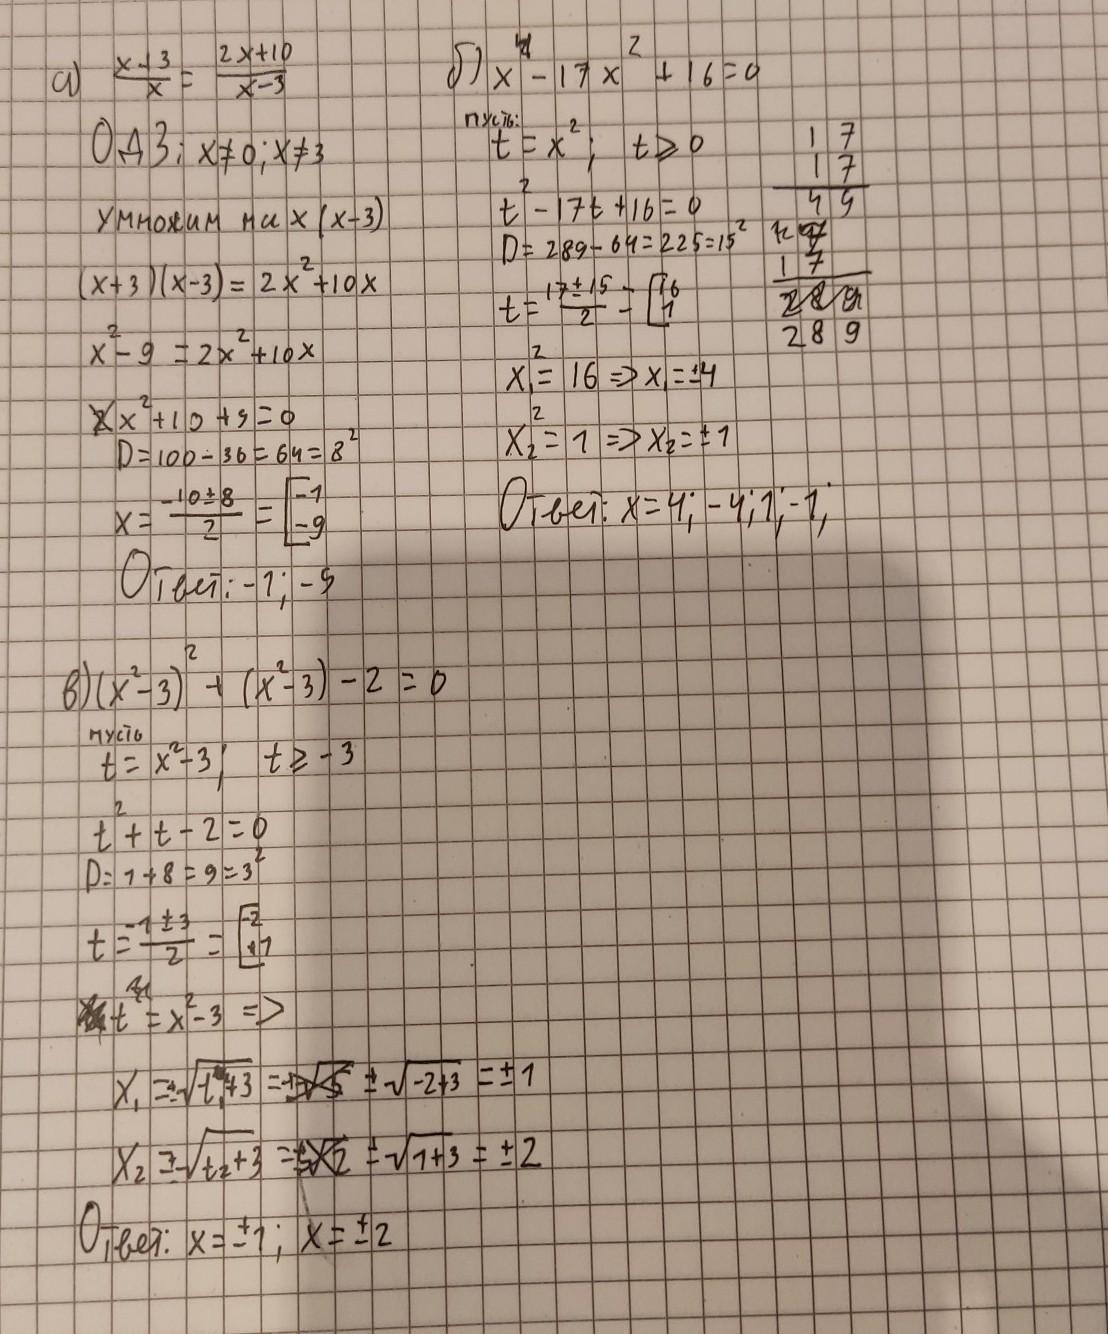 а) (x+3)/x = (2x+10)/(x-3)
ОДЗ: x≠0; x≠3
Умножим на x(x-3)
(x+3)(x-3) = 2x²+10x
x²-9 = 2x²+10x
x²+10+9=0
D=100-36=64=8²
x = (-10±8)/2 = [-1 -9
Ответ: -1; -9
б) x⁴-17x²+16=0
пусть:
t=x²; t≥0
t²-17t+16=0
D=289-64=225=15²
t=(17±15)/2=[16 1
x₁²=16 => x₁=±4
x₂²=1 => x₂=±1
Ответ: x=4; -4; 1; -1;
17
17
49
7
17
289
289
в) (x²-3)²+(x²-3)-2=0
пусть
t=x²-3; t≥-3
t²+t-2=0
D=1+8=9=3²
t=(-1±3)/2=[-2 +1
t=x²-3 =>
x₁=±√(t₁+3)=±√(-2+3)=±1
x₂=±√(t₂+3)=±√(1+3)=±2
Ответ: x=±1; x=±2